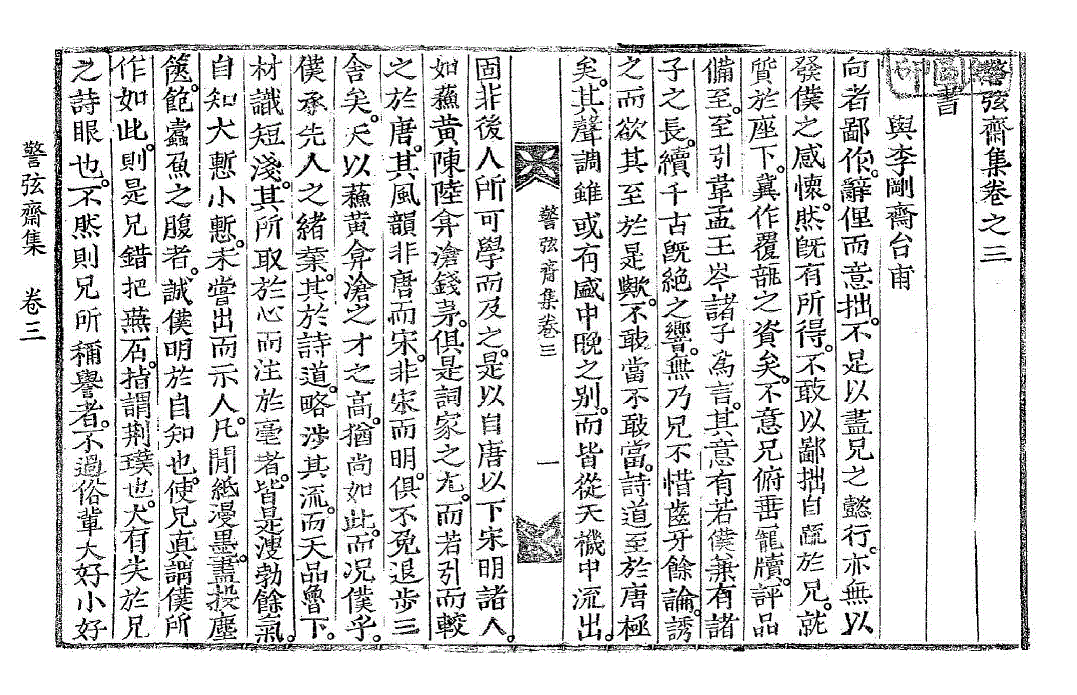 警弦齋集卷之三
書
與李剛齋台甫
向者鄙作。辭俚而意拙。不足以盡兄之懿行。亦無以
發僕之感懷。然旣有所得。不敢以鄙拙自疏於兄。就
質於座下。冀作覆瓿之資矣。不意兄俯垂寵牘。評品
備至。至引韋孟王岑諸子爲言。其意有若僕兼有諸
子之長。續千古旣絶之響。無乃兄不惜齒牙餘論。誘
之而欲其至於是歟。不敢當不敢當。詩道至於唐極
矣。其聲調雖或有盛中晚之别。而皆從天機中流出。
警弦齋集卷三
一
固非後人所可學而及之。是以自唐以下宋明諸人。
如蘇黃陳陸弇滄錢茅。俱是詞家之尤。而若引而較
之於唐。其風韻非唐而宋。非宋而明。俱不免退步三
舍矣。夫以蘇黃弇滄之才之高。猶尚如此。而況僕乎。
僕承先人之緖業。其於詩道。略涉其流。而天品魯下。
材識短淺。其所取於心而注於毫者。皆是溲勃餘氣。
自知大慙小慙。未嘗出而示人。凡閒紙漫墨。盡投塵
篋。飽蠹魚之腹者。誠僕明於自知也。使兄眞謂僕所
作如此。則是兄錯把燕石。指謂荆璞也。大有失於兄
之詩眼也。不然則兄所稱譽者。不過俗輩大好小好
警弦齋集 卷三